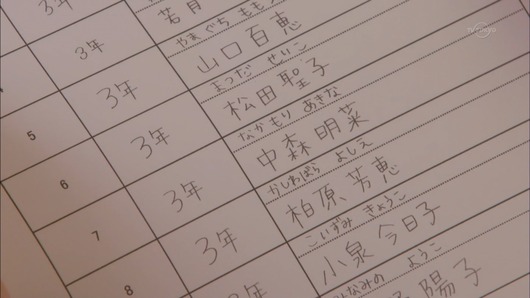 3年
若月
やまぐち もも
3年
山口百恵
まつだ せいこ
3年
松田聖子
なかもり あきな
5
3年
中森明菜
かしわばら よしえ
6
3年
柏原芳恵
こいずみ きょうこ
7
3年
小泉今日子
なみの ようこ
8
年
陽子
TV TOKYO